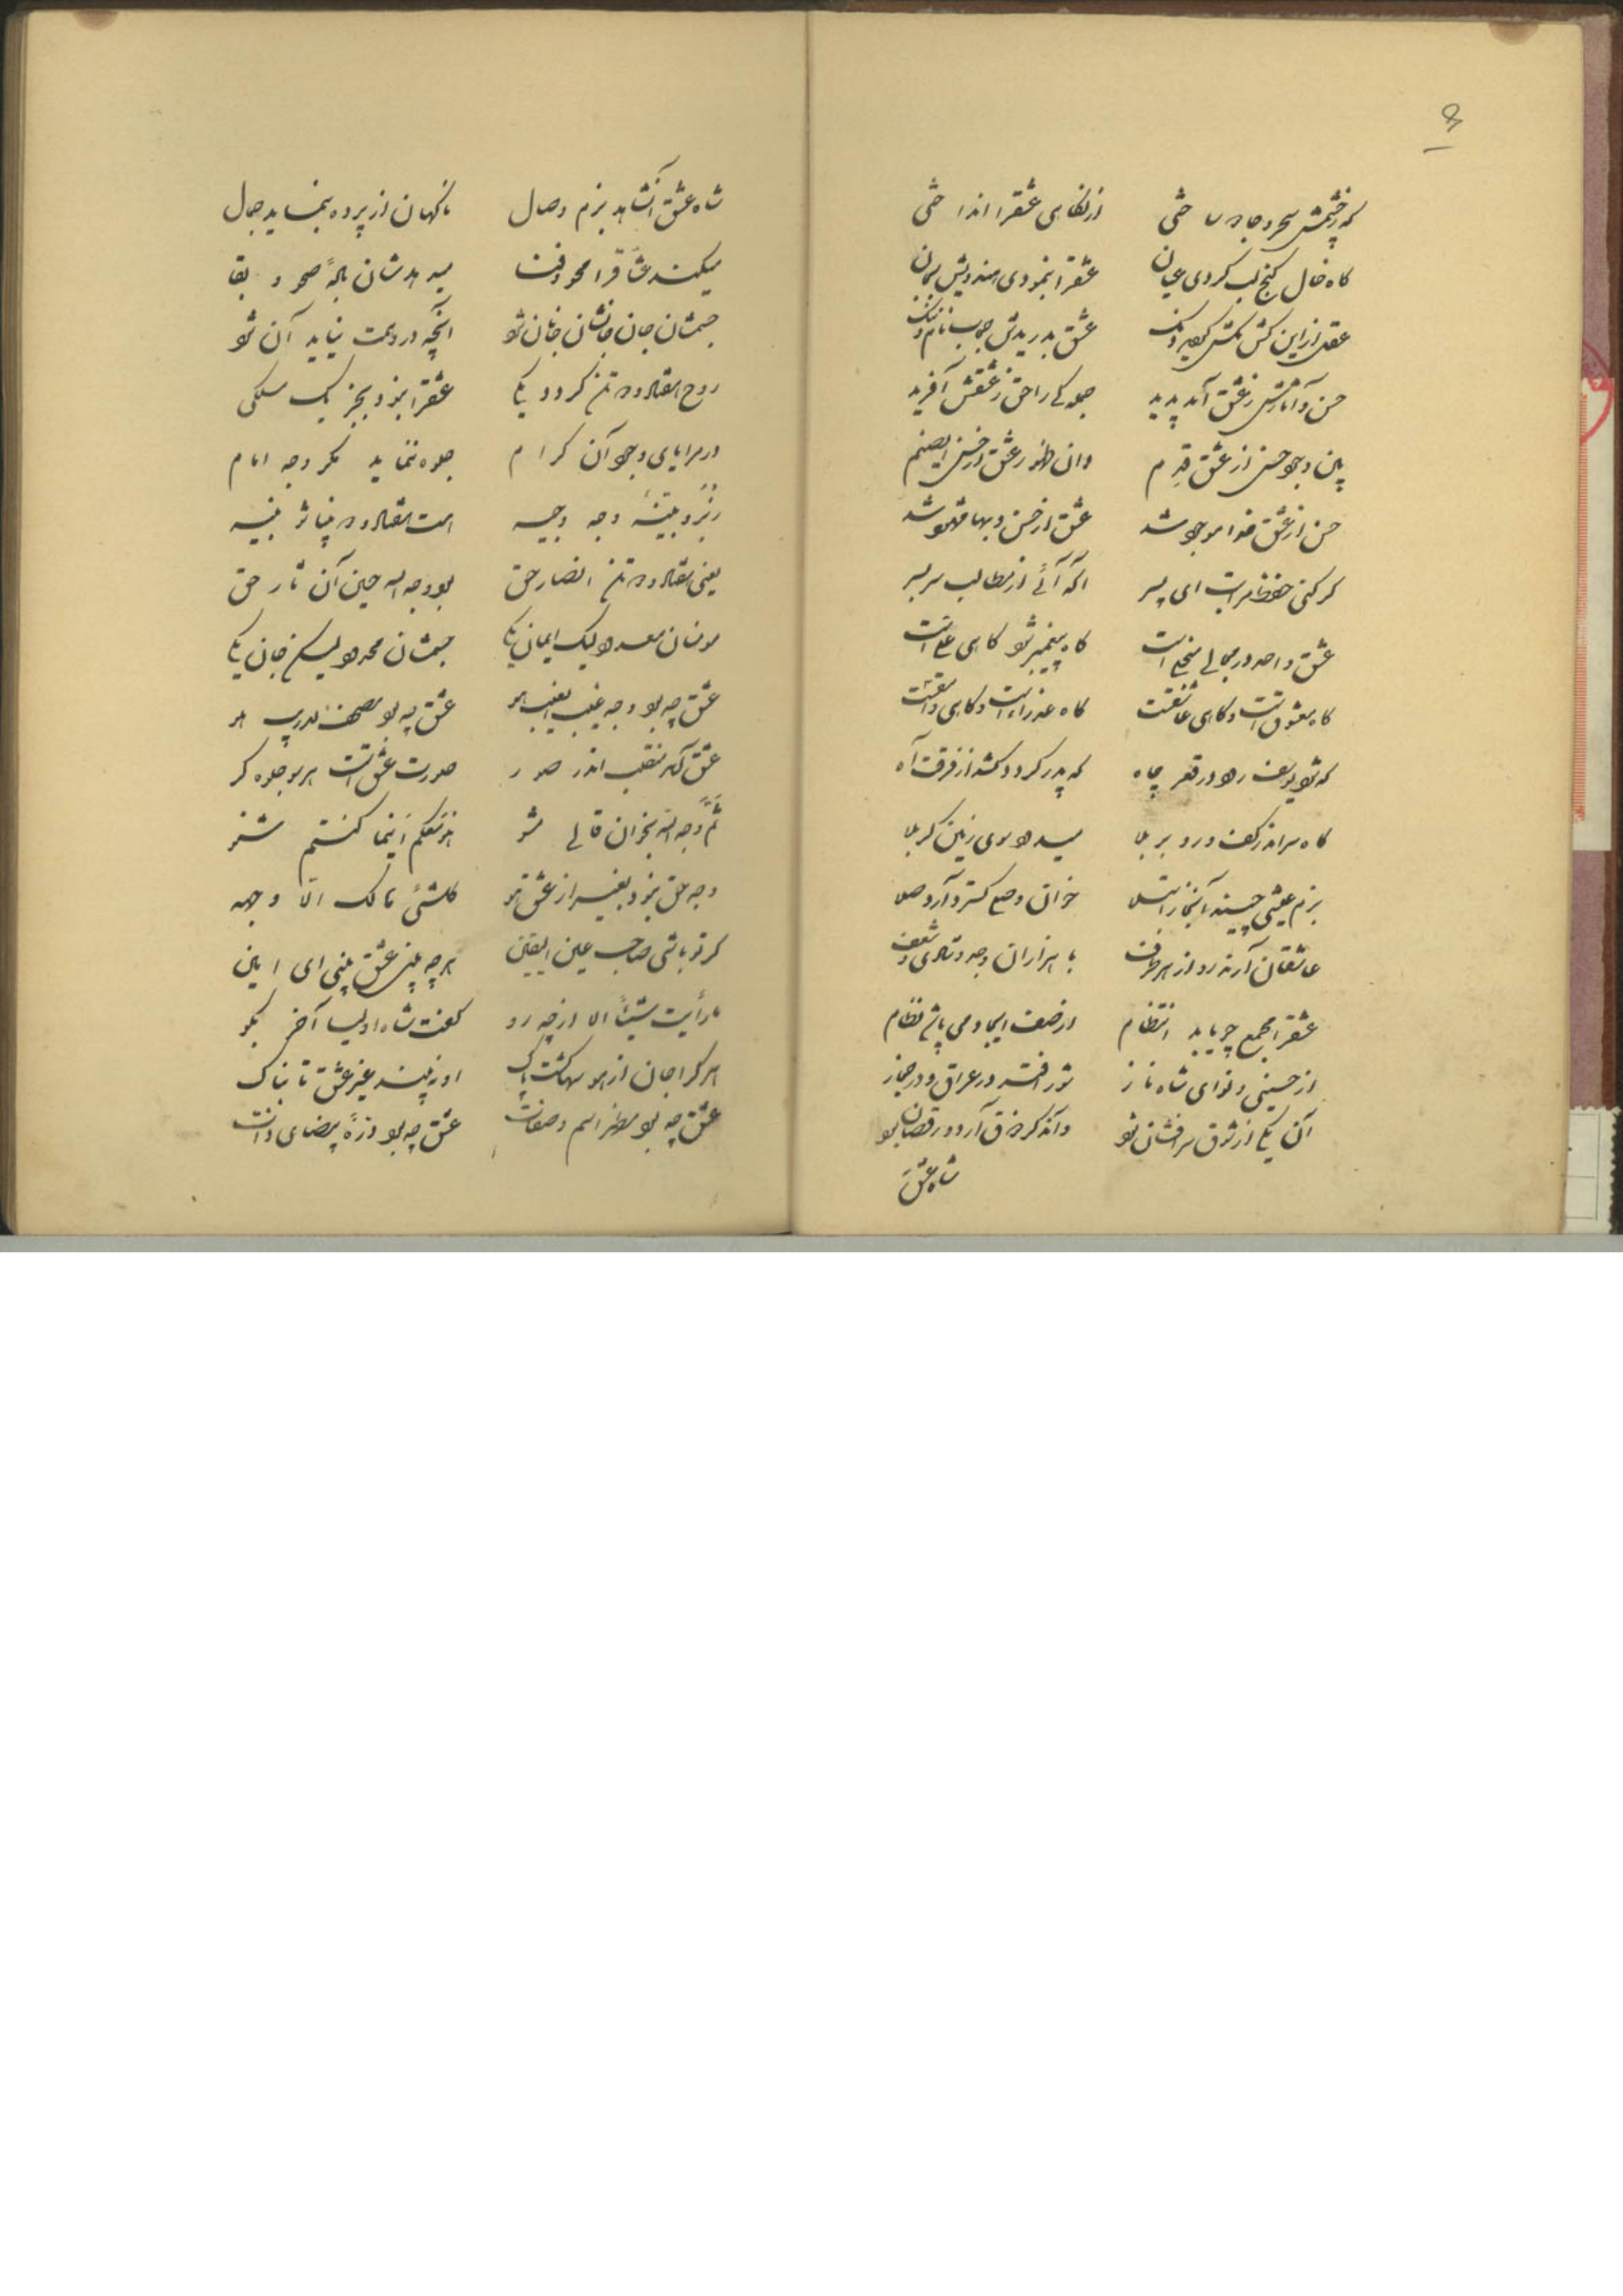 گه ز چشمش سحر و جادو ساختی از نگاهی عشقرا انداختی
گاه خال کنج لب کردی عیان عشقرا بنمودی هندویش بجان
عقل از این کش مکش گویید و عشق بدریدش
حسن و آثارش ز عشق آمد پدید جمله را حق ز عشقش آفرید
پس وجود حسن از عشق قدیم وان ظهور عشق از حسن ایصنم
حسن از عشق خدا موجود شد عشق از حسن و بها مشهود شد
گر کنی حفظ مراتب ای پسر آگه آئی از مطالب سر بسر
عشق واحد در مجالی است گاه پیغمبر شود گاهی علی است
گاه معشوق است و گاهی عاشقست گاه عذراء است و گاهی وامقست
گه شود یوسف رود در قعر چاه گه پدر گردد کشد از فرقت آه
گاه سر اندر کف و رو بر بلا میرود سوی زمین کربلا
بزم عیشی چیند آنجا ز ابتلا خوان وصل گسترد آرد صلا
عاشقان آرند رو از هر طرف با هزاران وجد و شادی و شعف
عشقرا مجمع چو یابد انتظام از صف ایجاد می پاشد نظام
از حسینی و نوای شاه ناز شور افتد در عراق و در حجاز
آن یکی از شوق سر افشان شود واندگر در رقصان بود
شاه عشق
شاه عشق آنشاهد بزم وصال ناگهان از پرده بنماید جمال
میکند عشاقرا محو و فنا میدهدشان باله صحو و بقا
جسمشان جان جانشان جانان شود آنچه در وهمت نیاید آن شود
روح هفتاد و دو تن گردد یکی عشقرا نبود بجز یک مسلکی
در مرایای وجود آن کرام جلوه ننماید مگر وجه امام
وجه وجیه است هفتاد و دو
یعنی هفتاد و دو تن انصار حق بود وجه الله حین آن نثار حق
مومنان معدود لیک ایمان یکی جسمشان معدود لیکن جان یکی
عشق چه بود وجه غیب الغیب هو عشق چه بود مصحف لاریب هو
عشق آمد منقلب اندر صور صورت عشق است هر سو جلوه گر
ثم وجه الله بخوان قالی مشو هو معکم اینما کنتم شنو
وجه حق نبود بغیر از عشق هو کلشئی هالک الا وجهه
گر تو باشی صاحب عین الیقین هر چه بینی عشق بینی ای امین
ما رأیت شیئا الا از چه رو گفت شاه اولیا آخر بگو
هر کرا جان از هوسها گشت پاک او نبیند غیر عشق تابناک
عشق چه بود مظهر اسم و صفات عشق چه بود ذره بیضای ذات